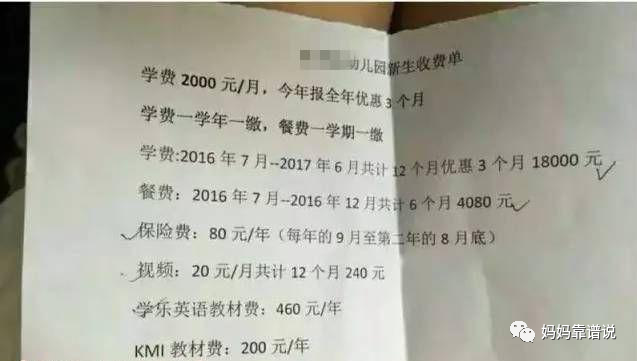 幼儿园新生收费单
学费 2000 元/月，今年报全年优惠 3 个月
学费一学年一缴，餐费一学期一缴
学费:2016 年 7 月--2017 年 6 月共计 12 个月优惠 3 个月 18000 元
餐费：2016 年 7 月--2016 年 12 月共计 6 个月 4080 元
保险费：80 元/年（每年的 9 月至第二年的 8 月底）
视频：20 元/月共计 12 个月 240 元
学乐英语教材费：460 元/年
KMI 教材费：200 元/年
妈妈靠谱说